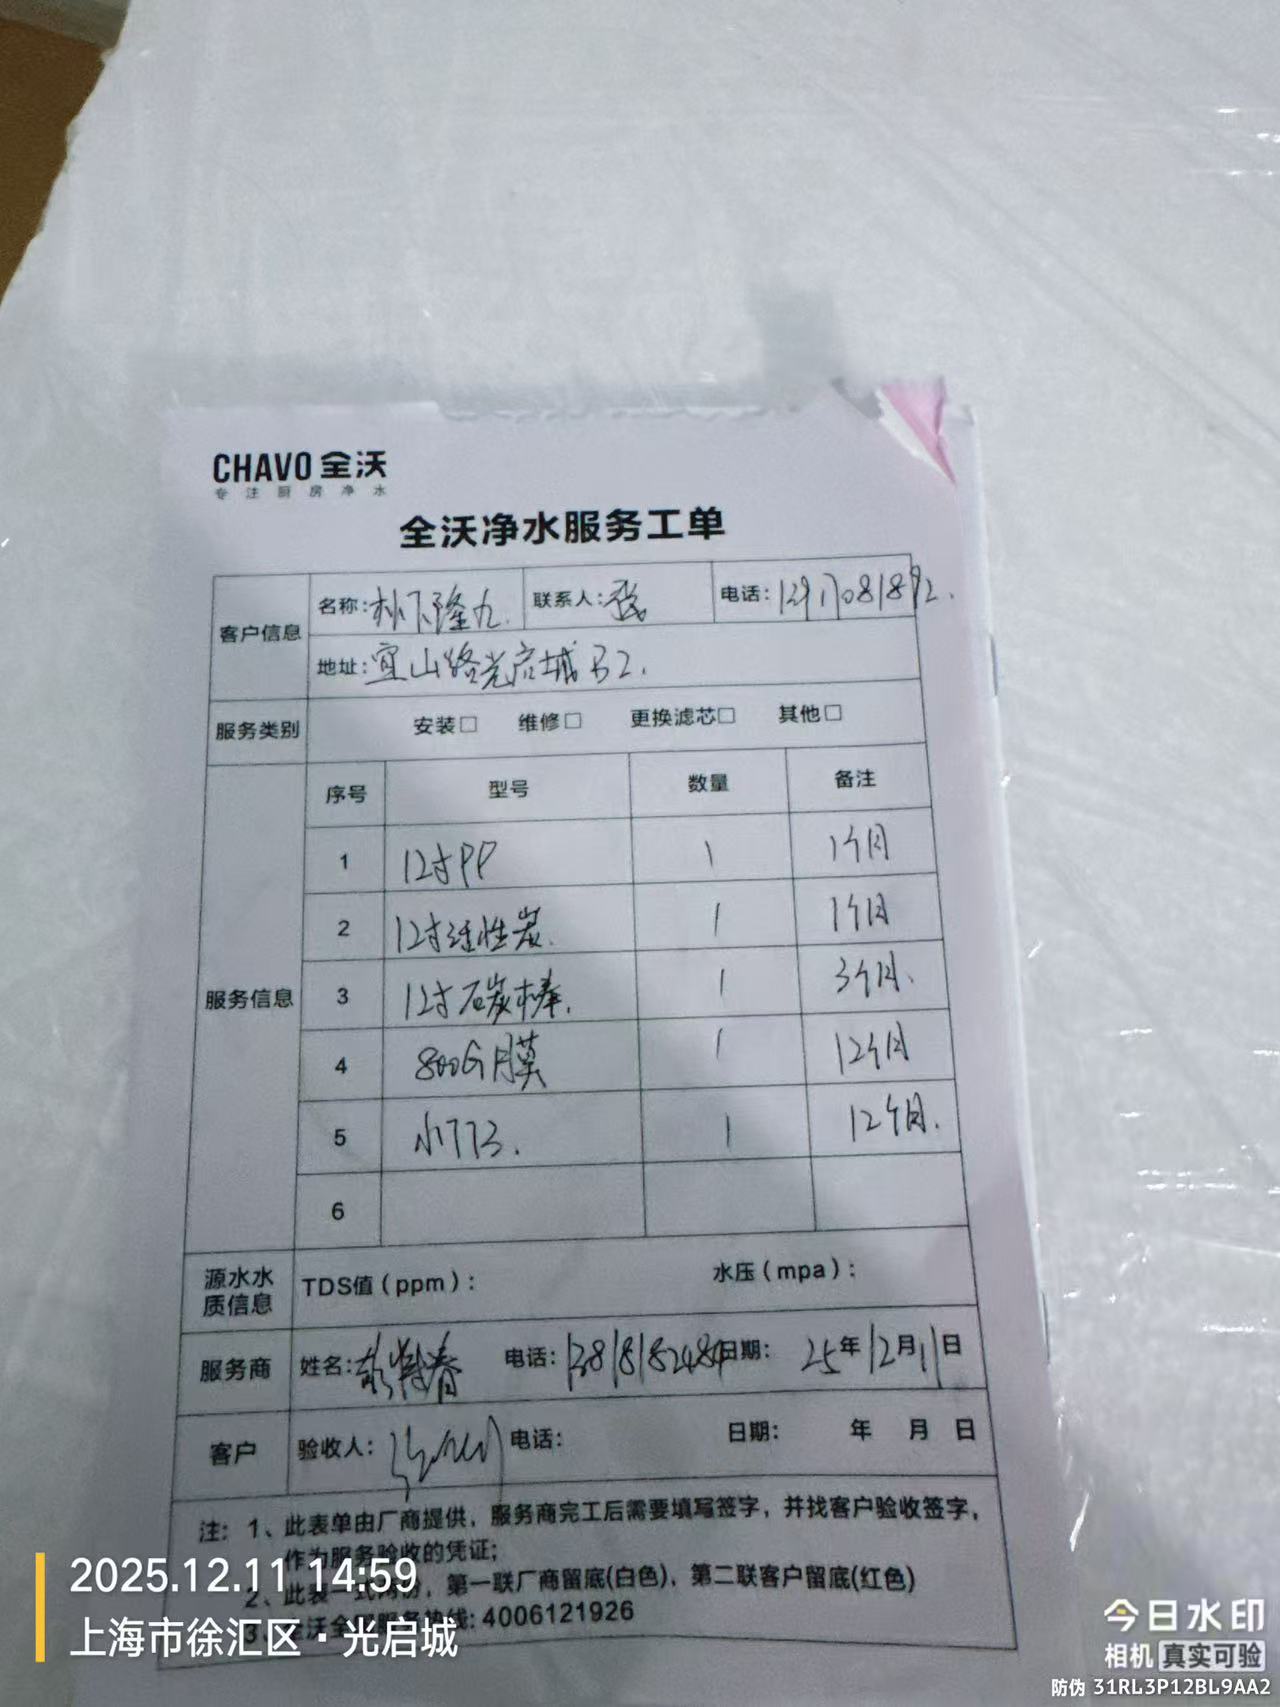 CHAVO 全沃
专注厨房净水
全沃净水服务工单
客户信息 名称:松下隆九. 联系人:张 电话:13917081892.
地址:宜山路光启城B2.
服务类别 安装□ 维修□ 更换滤芯□ 其他□
服务信息 序号 型号 数量 备注
1 12寸PP 1 1个月
2 12寸活性炭. 1 1个月
3 12寸碳棒. 1 3个月.
4 800G膜 1 12个月
5 小T33. 1 12个月.
6
源水水质信息 TDS值(ppm): 水压(mpa):
服务商 姓名: 春 电话:13818182484 日期: 25年12月11日
客户 验收人: 电话: 日期: 年 月 日
注: 1、此表单由厂商提供，服务商完工后需要填写签字，并找客户验收签字，
作为服务验收的凭证;
2、此表一式两份，第一联厂商留底(白色)，第二联客户留底(红色)
3、全沃全国服务热线: 4006121926
2025.12.11 14:59
上海市徐汇区·光启城
今日水印
相机 真实可验
防伪 31RL3P12BL9AA2